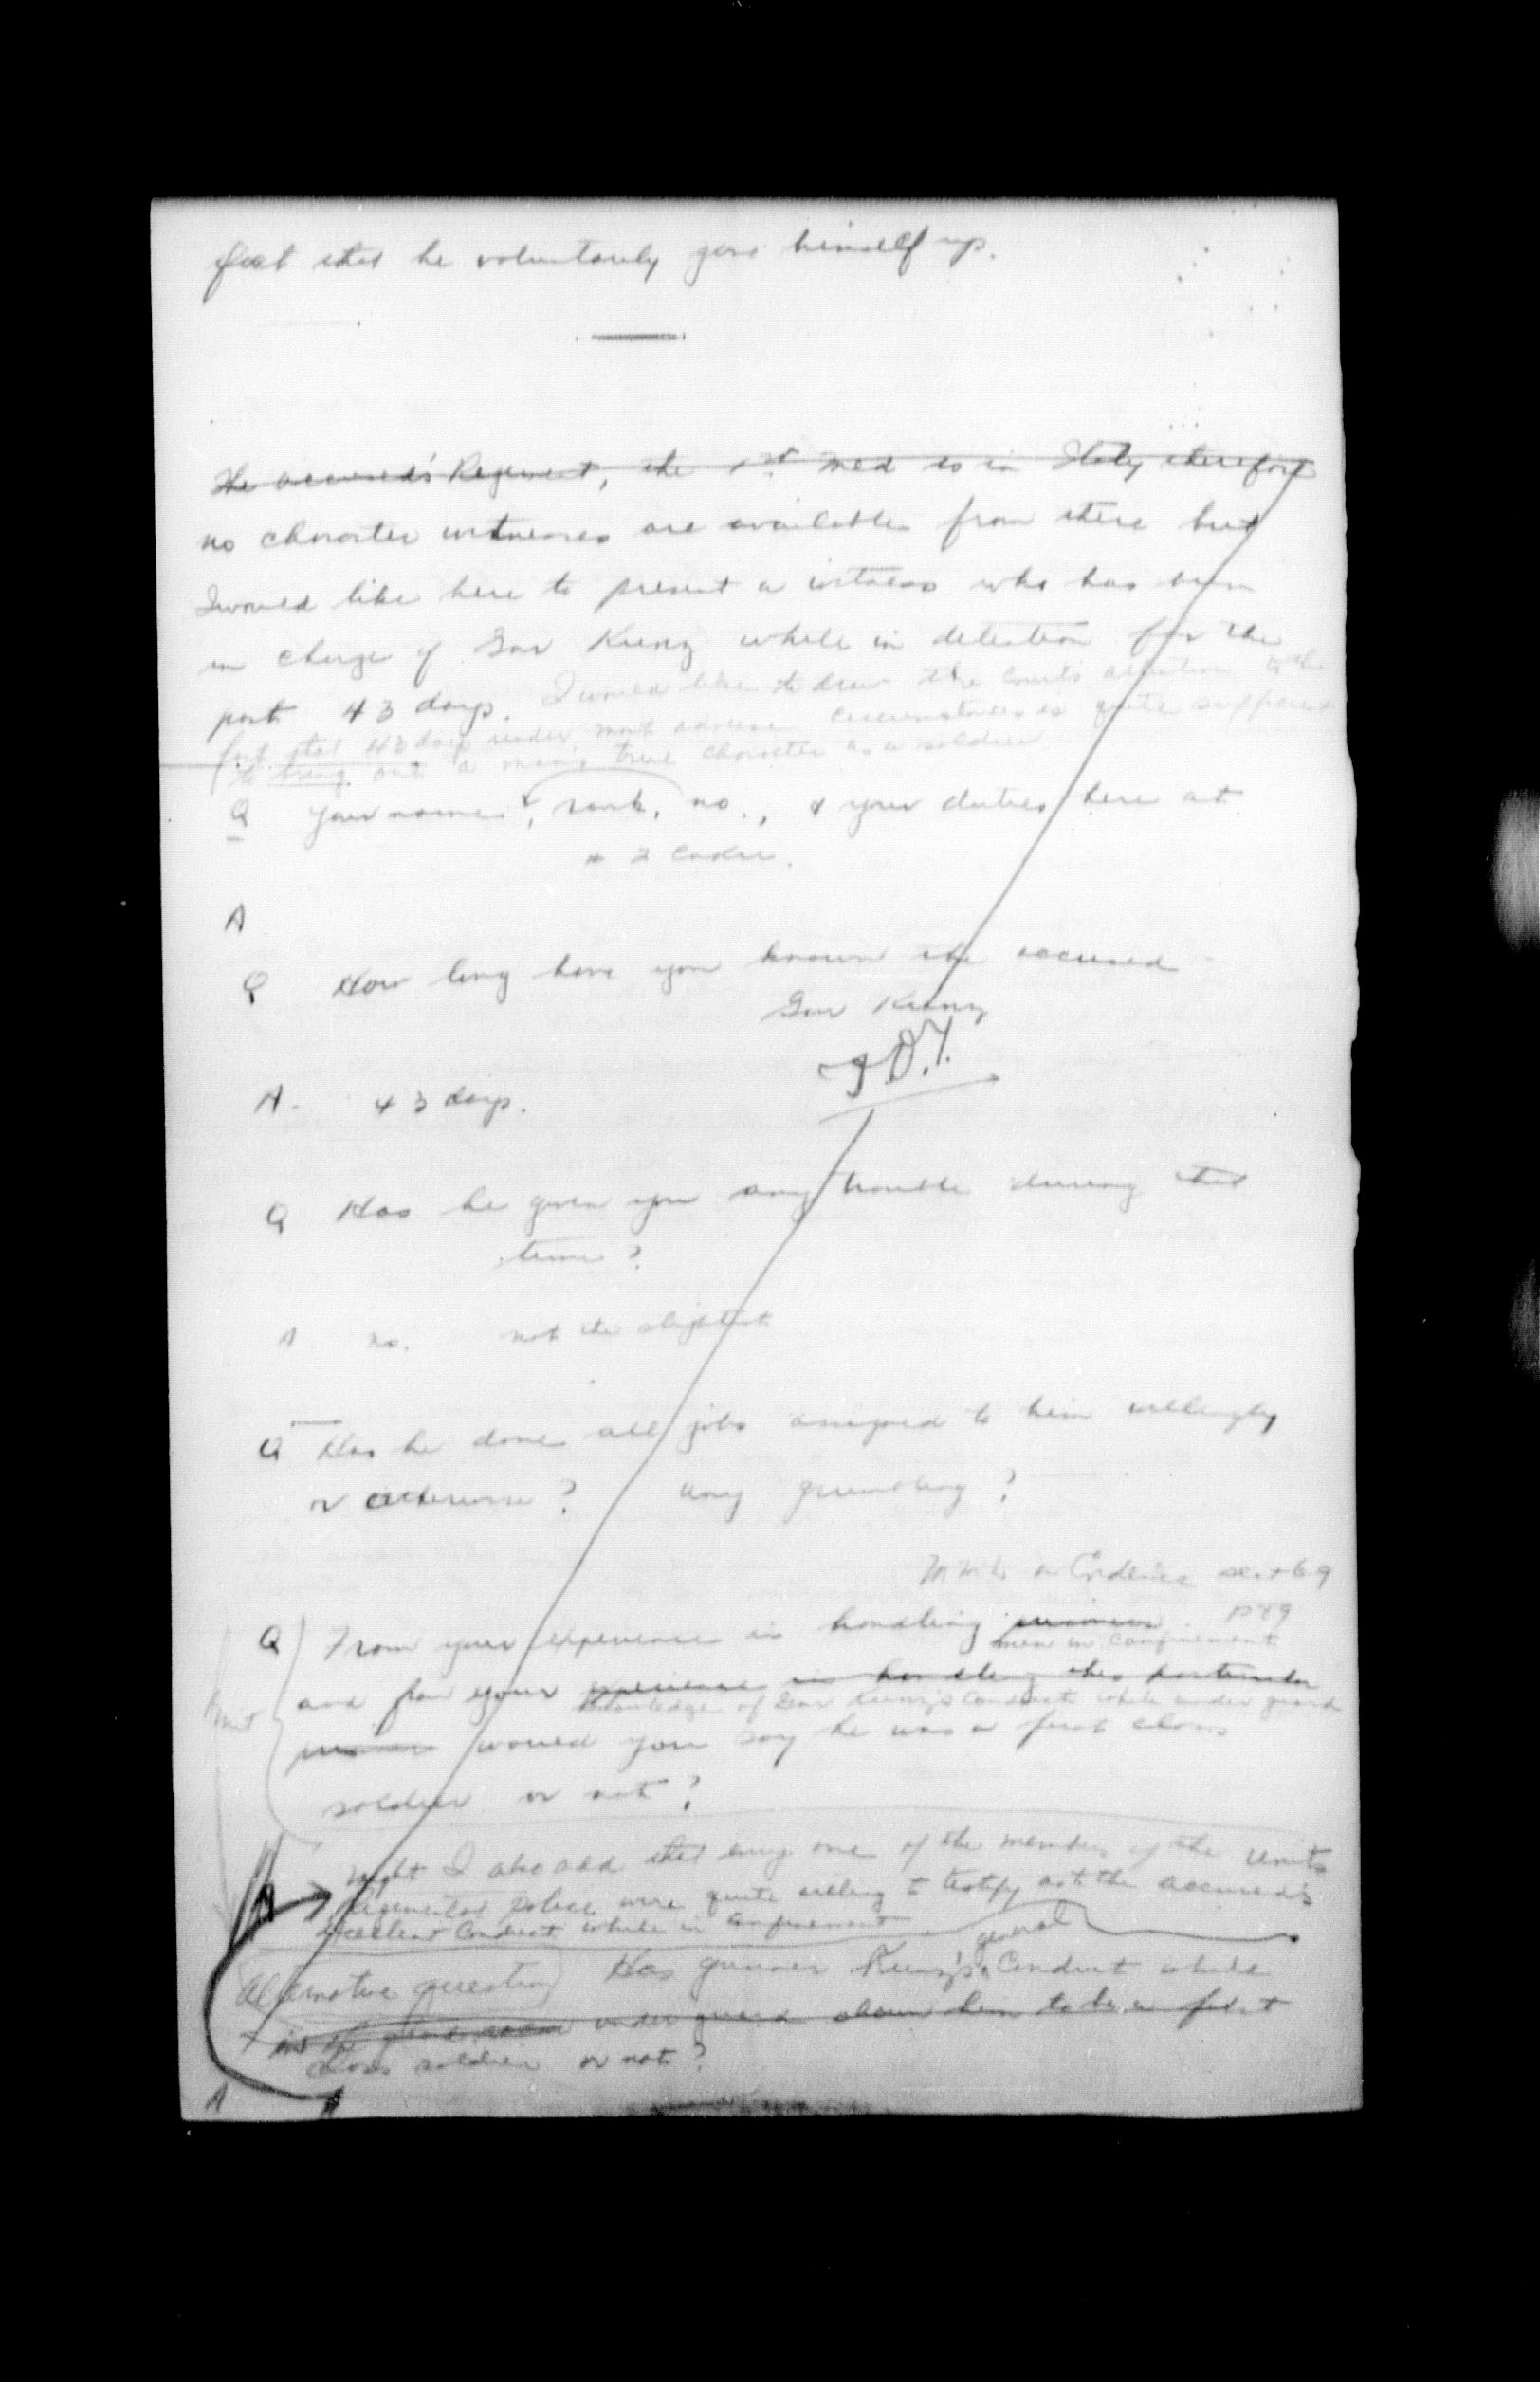 fact that he voluntarily gave himself up.
The accused's Regiment, the 1st Med is in Italy therefore
no character witnesses are available from there but
I would like here to present a witness who has been
in charge of Gnr Kunz while in detention for the
past 43 days. I would like to draw the Court's attention to the
fact that 43 days under most adverse circumstances is quite sufficient
to bring out a mans true character as a soldier
Q Your name, rank, no., & your duties here at
# 2 Cadre.
A
Q How long have you known the accused
Gnr Kunz
A. 43 days.
Q Has he given you any trouble during that
time?
A no. not the slightest
Q Has he done all jobs assigned to him willingly
or otherwise? Any grumbling?
M M L on Evidence sect 69
p 89
Q From your experience in handling prisoners
men in confinement
and from your experience in handling this particular
knowledge of Gnr Kunz's Conduct while under guard
prisoner would you say he was a first class
soldier or not?
Might I also add that every one of the members of the Units
Regimental Police were quite willing to testify as to the accused's
excellent Conduct while in Confinement
general
Alternative question Has gunner Kunz's Conduct while
in the guard room under guard shown him to be a first
class soldier or not?
A A